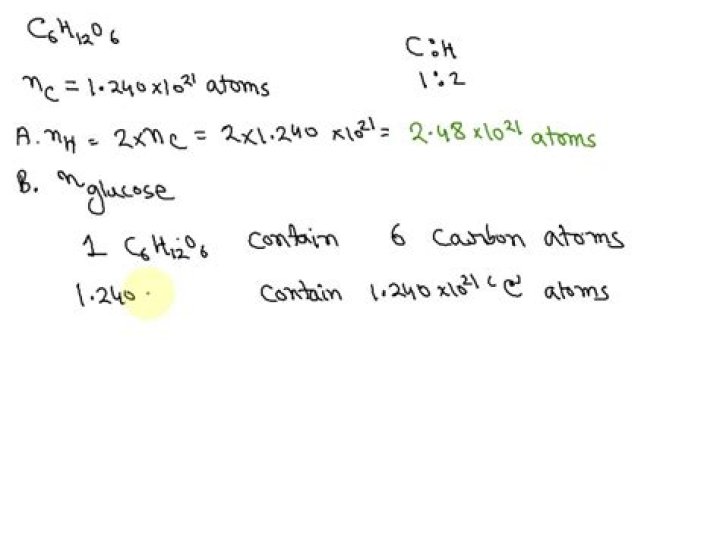 C₆H₁₂O₆
C:H
n_C = 1.240×10²¹ atoms
1:2
A. n_H = 2×n_C = 2×1.240 ×10²¹ = 2.48×10²¹ atoms
B. n_glucose
1 C₆H₁₂O₆ contain 6 carbon atoms
1.240 contain 1.240×10²¹ C atoms